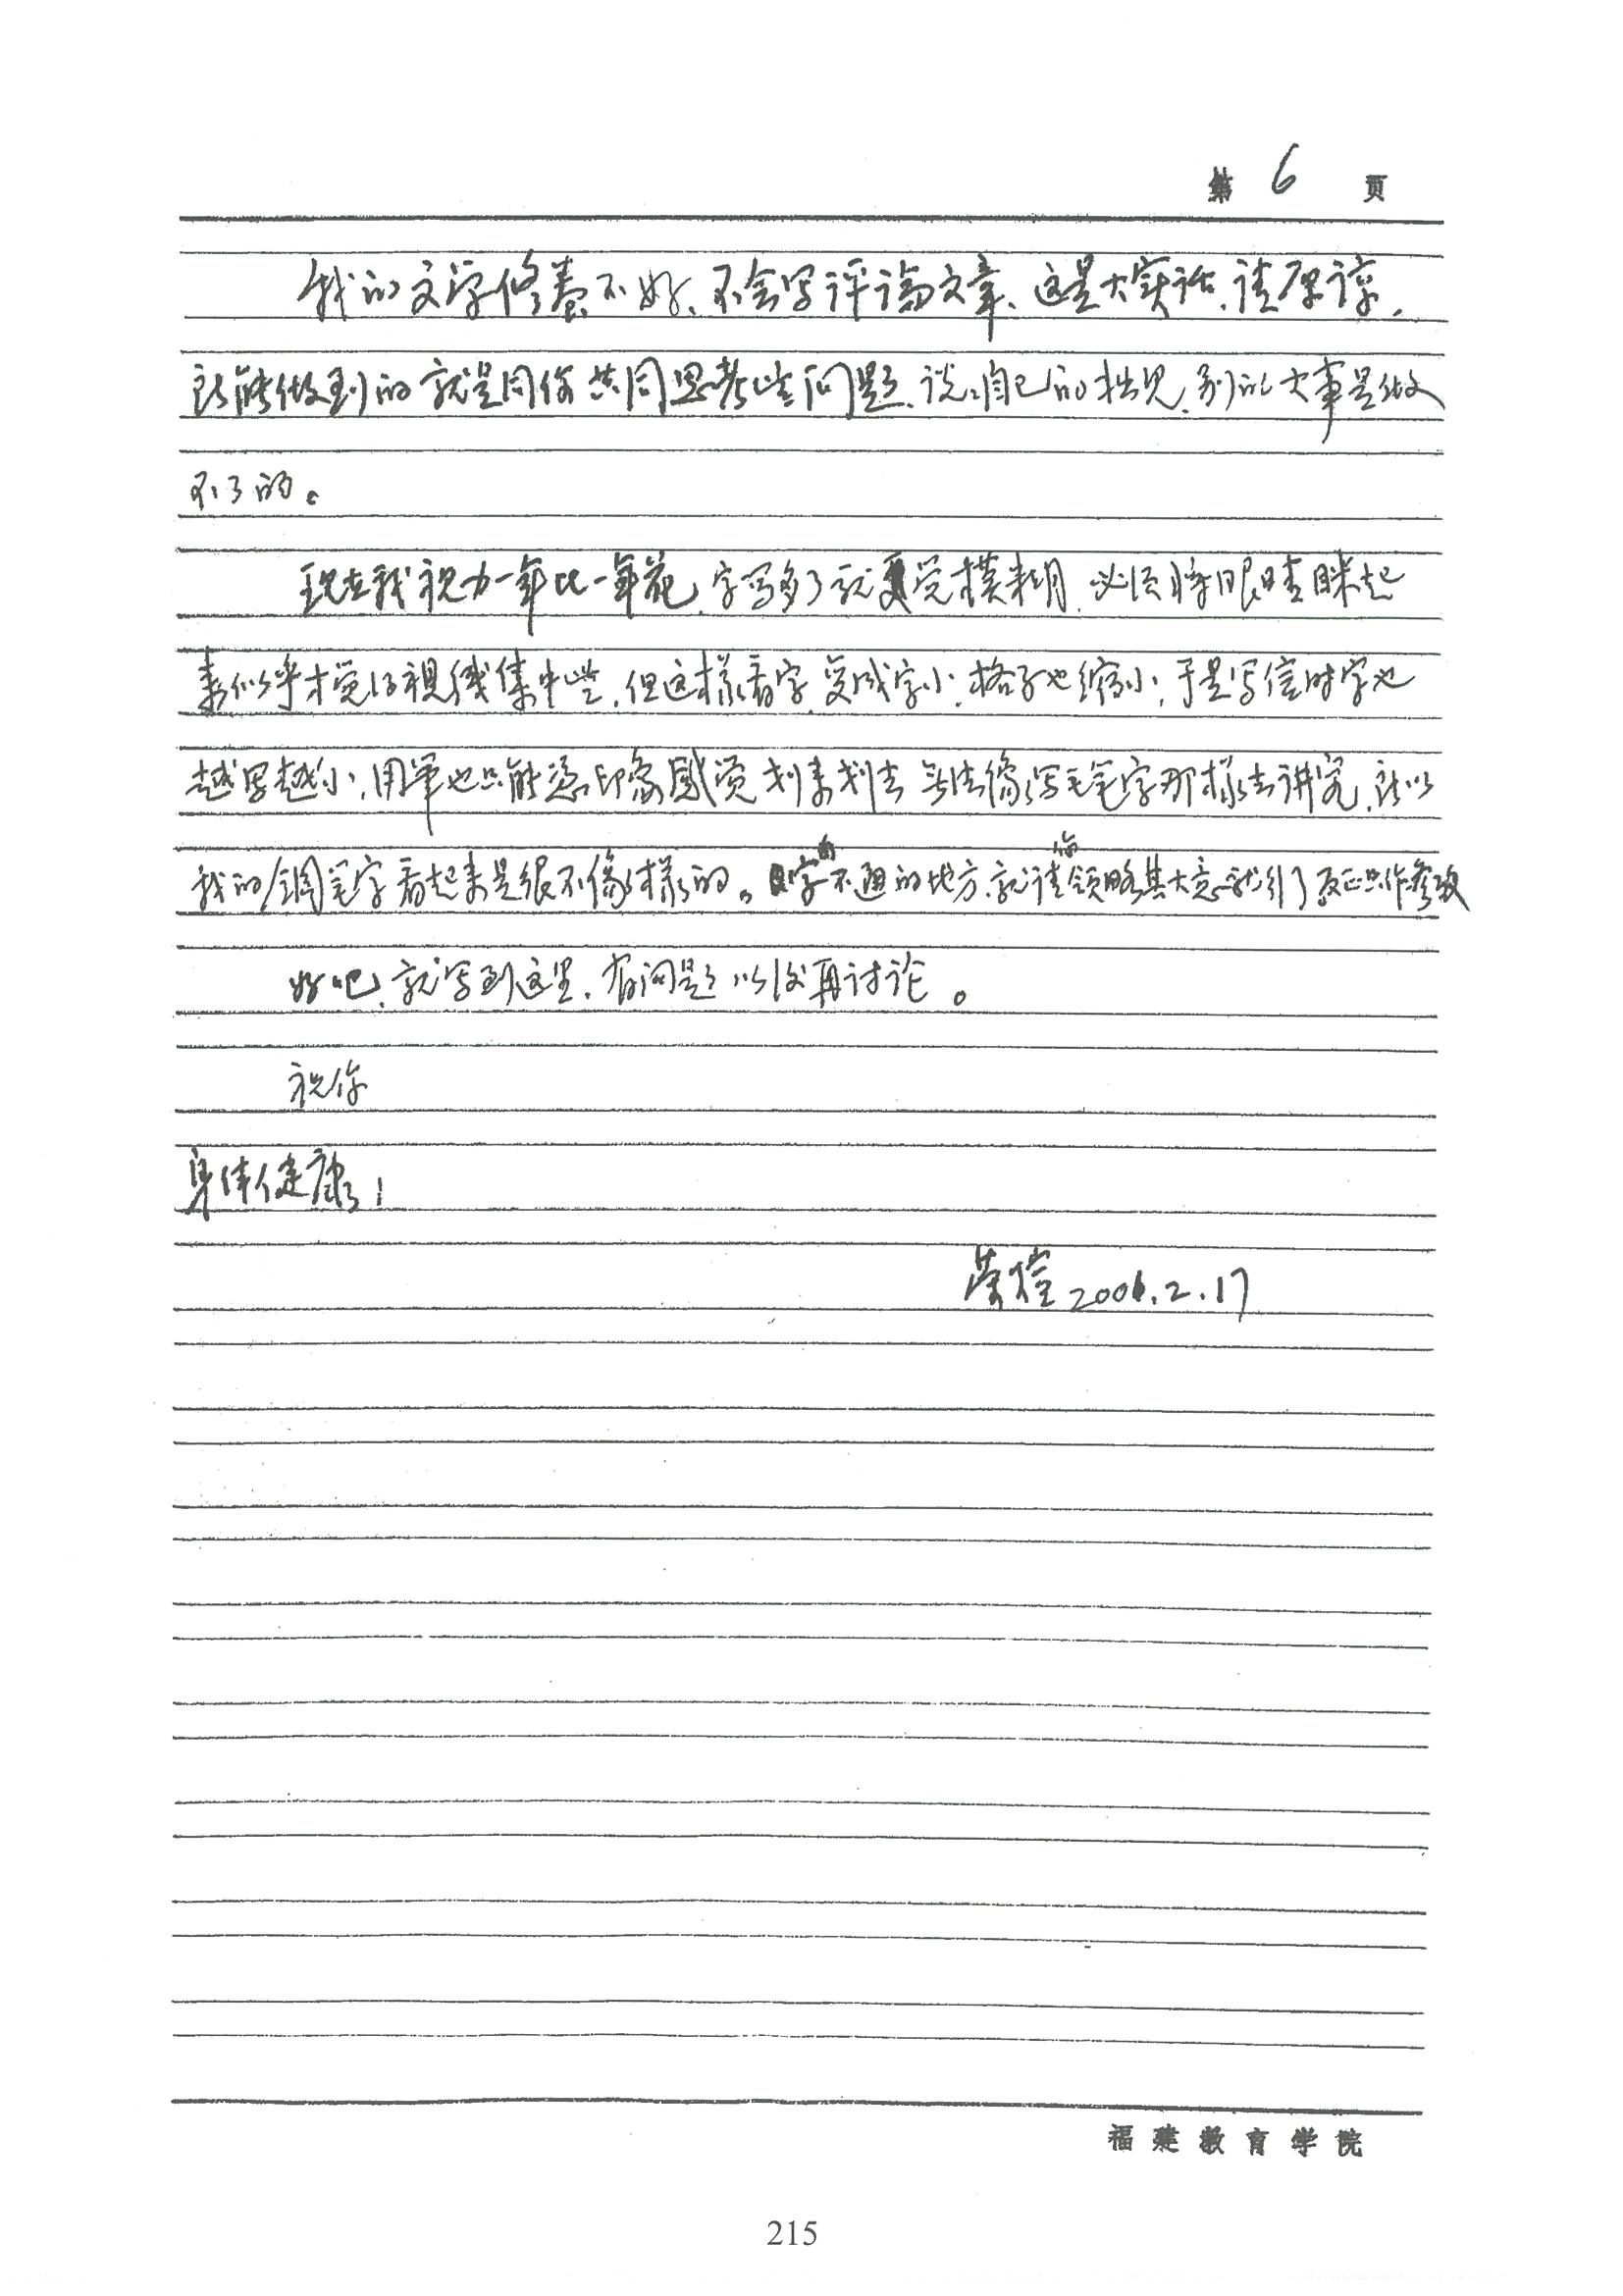 第 6 页
我的文字修养不好、不会写评论文章、这是大实话、请原谅.
所能做到的就是同你共同思考些问题、谈谈自己的拙见、别的大事是做
不了的。
现在我视力一年比一年花、字写多了就更觉模糊、必须将眼睛眯起
来似乎才觉得视线集中些、但这样看字、变成字小、格子也缩小、于是写信时字也
越写越小、用笔也只能凭印象感觉划来划去 无法像写毛笔字那样去讲究、所以
我的钢笔字看起来是很不像样的。字句不通的地方、就请你领略其大意就行了 反正只作参考
好吧、就写到这里、有问题以后再讨论。
祝你
身体健康!
2006.2.17
福建教育学院
215